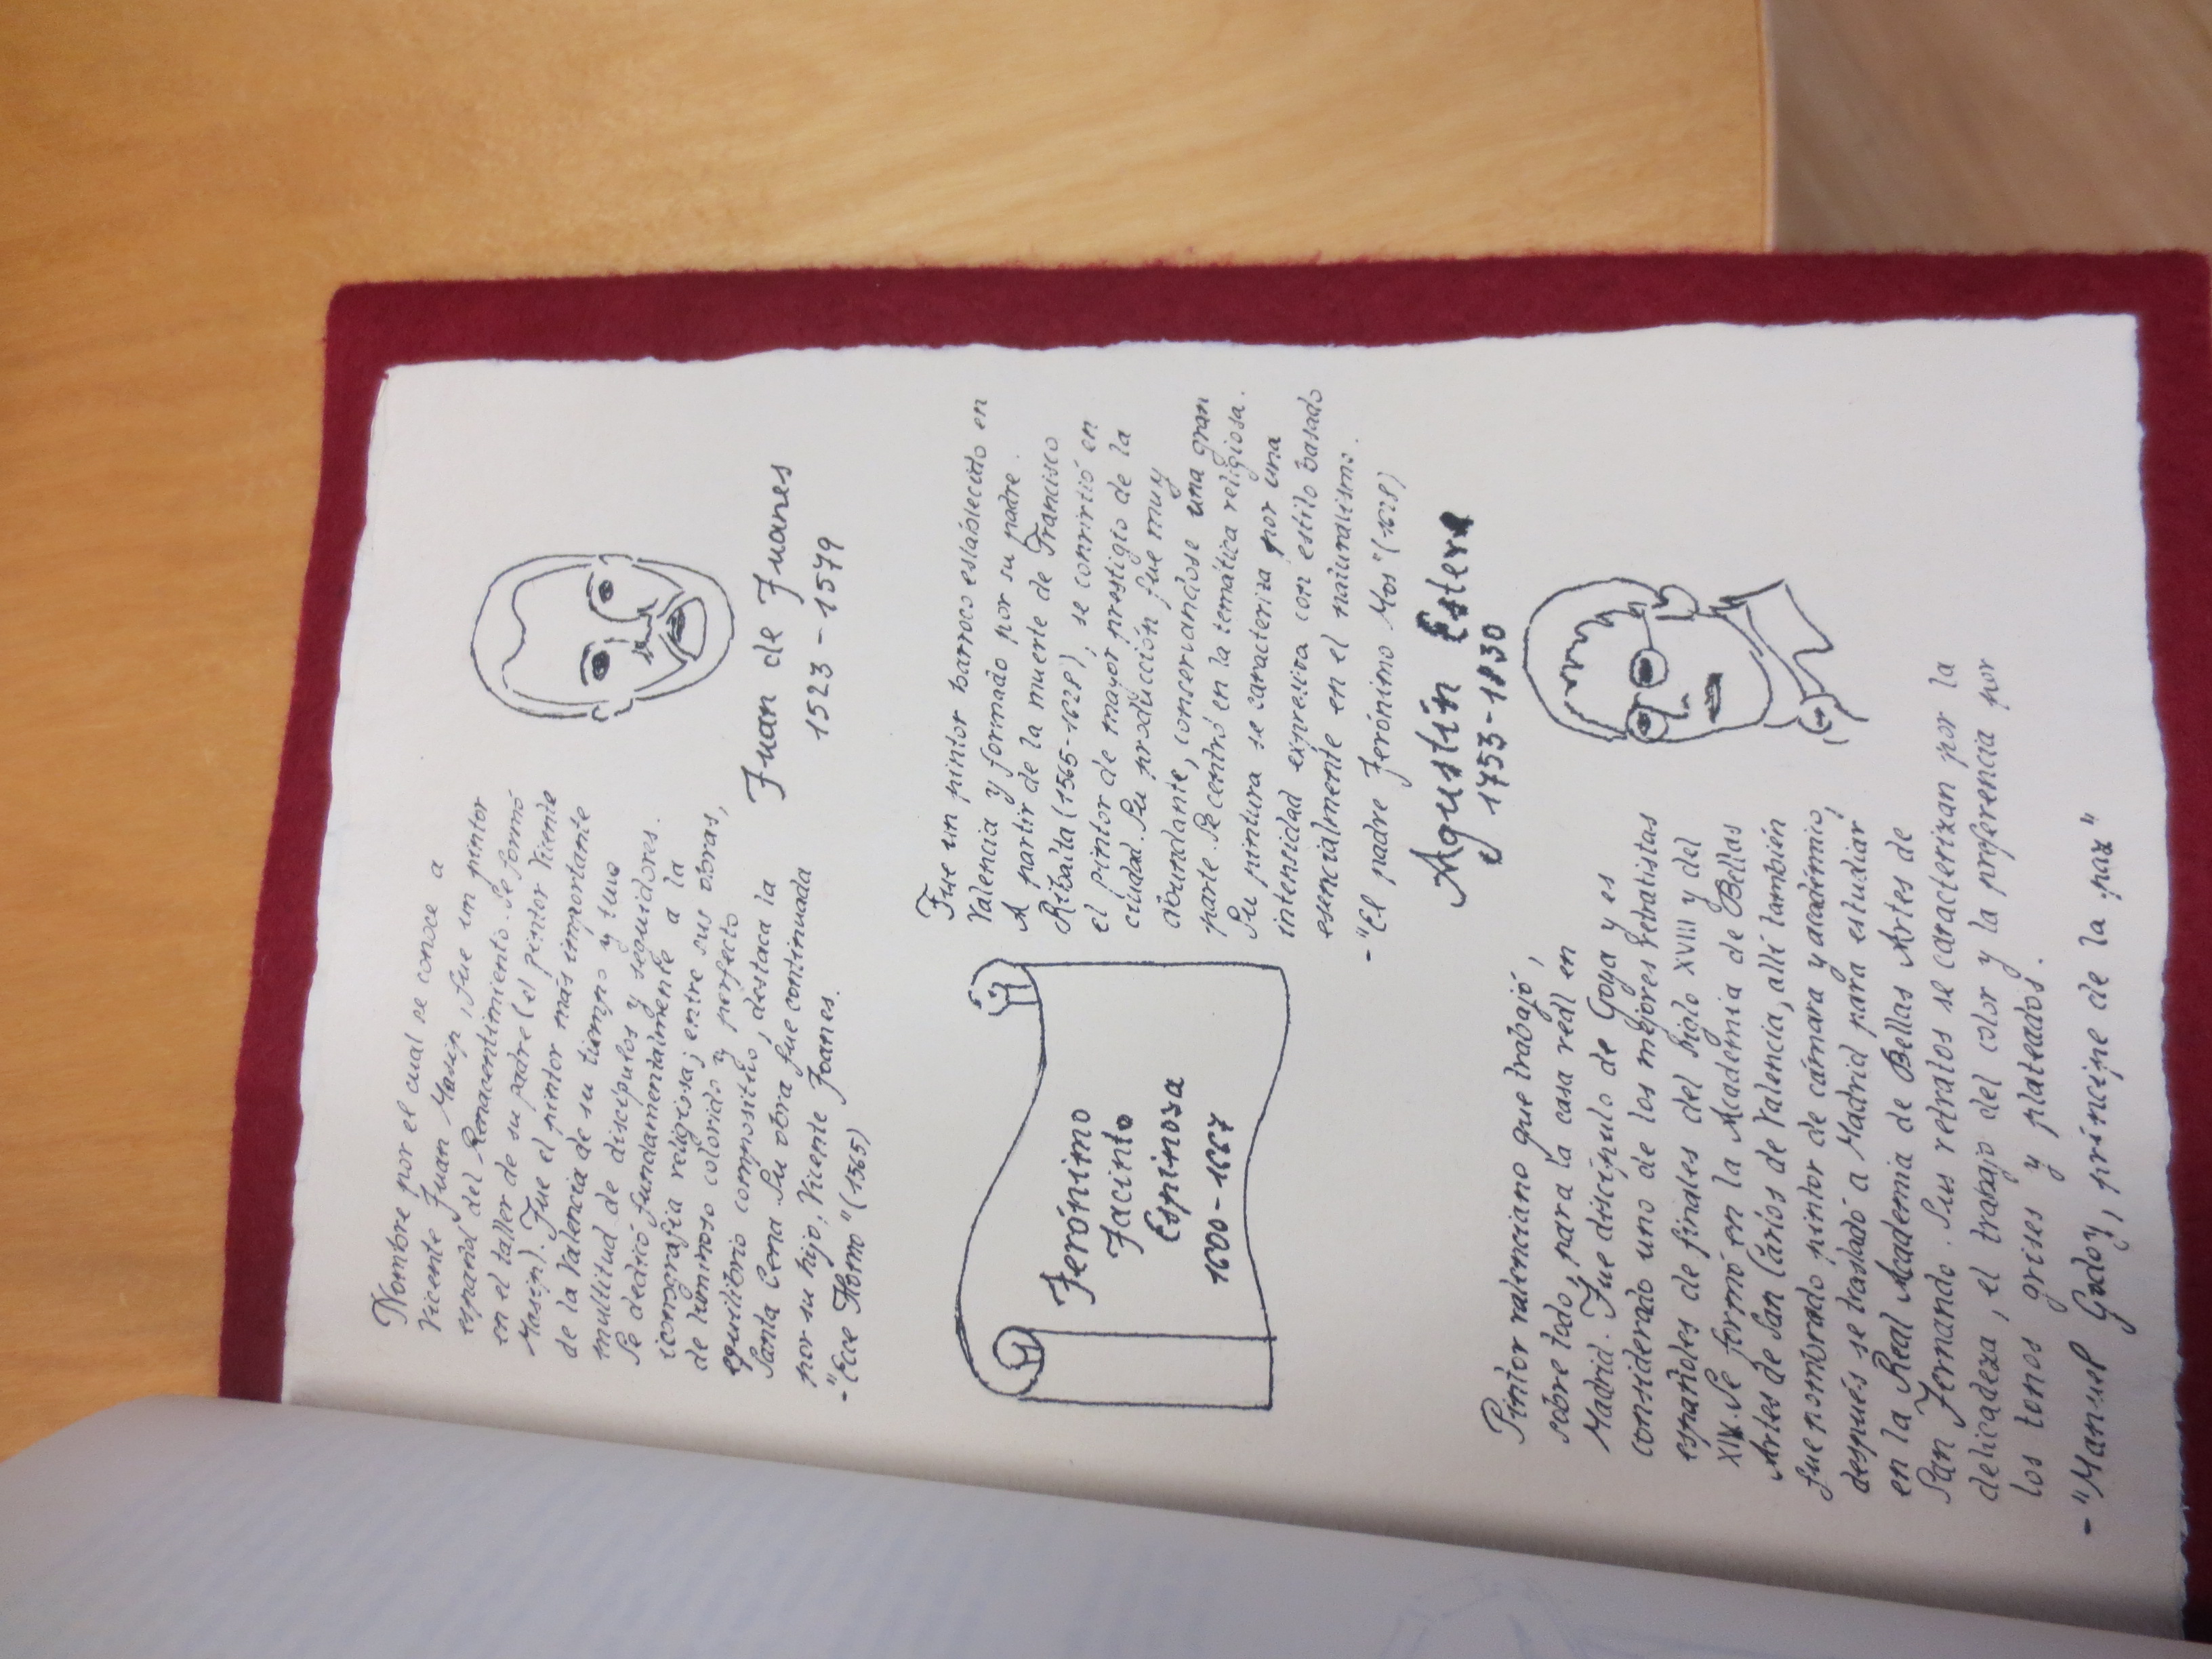 Nombre por el cual se conoce a
Vicente Juan Masip, fue un pintor
español del Renacentimiento. Se formó
en el taller de su padre (el pintor Vicente
Masip). Fue el pintor más importante
de la Valencia de su tiempo y tuvo
multitud de discípulos y seguidores.
Se dedicó fundamentalmente a la
iconografía religiosa; entre sus obras,
de luminoso colorido y perfecto
equilibrio compositivo, destaca la
Santa Cena. Su obra fue continuada
por su hijo; Vicente Joanes.
-"Ecce Homo" (1565)
Juan de Juanes
1523 - 1579
Jerónimo
Jacinto
Espinosa
1600-1667
Fue un pintor barroco establecido en
Valencia y formado por su padre.
A partir de la muerte de Francisco
Ribalta (1565-1628); se convirtió en
el pintor de mayor prestigio de la
ciudad. Su producción fue muy
abundante, concervandose una gran
parte. Se centró en la temática religiosa.
Su pintura se caracteriza por una
intensidad expresiva con estilo basado
esencialmente en el naturalismo.
-"El padre Jerónimo Mos" (1628)
Agustín Esteve
1753-1830
Pintor valenciano que trabajó,
sobre todo, para la casa real en
Madrid. Fue discípulo de Goya y es
considerado uno de los mejores retratistas
españoles de finales del siglo XVIII y del
XIX. Se formó en la Academia de Bellas
Artes de San Carlos de Valencia, allí también
fue nombrado pintor de cámara y académio,
después se trasladó a Madrid para estudiar
en la Real Academia de Bellas Artes de
San Fernando. Sus retratos se caracterizan por la
delicadeza, el trabajo del color y la preferencia por
los tonos grises y plateados.
-"Manuel Godoy, príncipe de la paz"